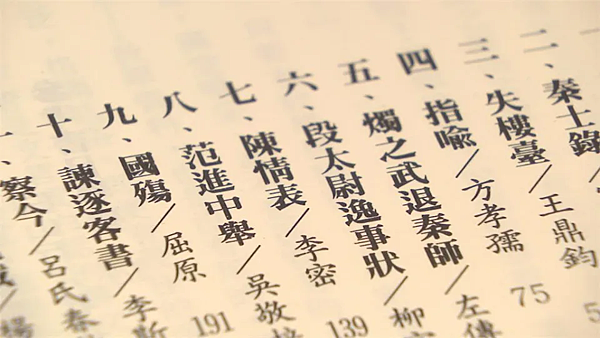 二、秦士錄
三、失樓臺／王鼎鈞
四、指喻／方孝孺 75
五、燭之武退秦師／左傳
六、段太尉逸事狀／柳
七、陳情表／李密 139
八、范進中舉／吳敬
九、國殤／屈原 191
十、諫逐客書／李斯
一、察今／呂氏春